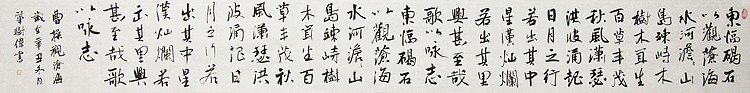 東臨碣石
以觀滄海
水河澹山
島竦峙
樹木耳生
百草豐茂
秋風蕭瑟
洪波涌起
日月之行
若出其中
星漢燦爛
若出其里
甚至哉
歌以咏志
東臨碣石
以觀滄海
水河澹山
島竦峙樹
木耳生百
草豐茂秋
風蕭瑟洪
波涌起日
月之行若
出其中星
漢燦爛若
出其里
甚至哉歌
以咏志
曹操觀滄海
歲在辛丑冬月
樹偉書